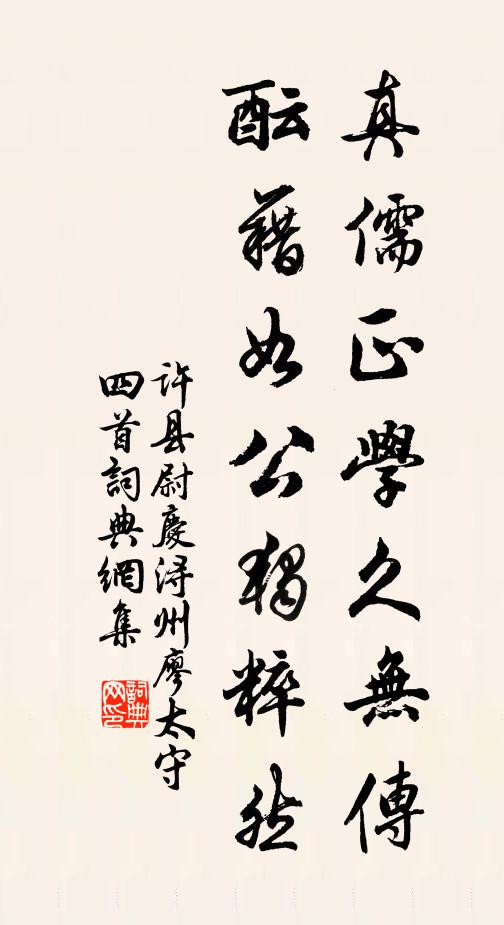 真儒正學久無傳
醞藉如公獨粹然
許县尉慶潯州廖太守
四首詞典網集
詞典
网印